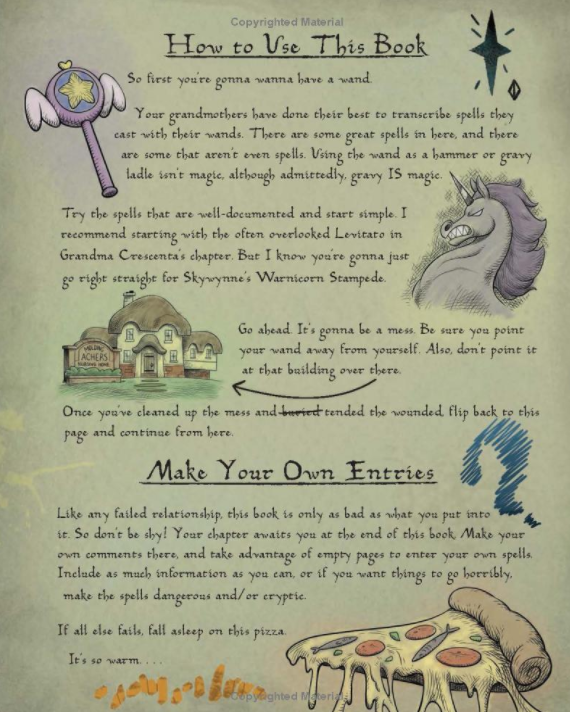 Copyrighted Material
How to Use This Book
So first you're gonna wanna have a wand.
Your grandmothers have done their best to transcribe spells they
cast with their wands. There are some great spells in here, and there
are some that aren't even spells. Using the wand as a hammer or gravy
ladle isn't magic, although admittedly, gravy IS magic.
Try the spells that are well-documented and start simple. I
recommend starting with the often overlooked Levitato in
Grandma Crescenta's chapter. But I know you're gonna just
go right straight for Skywynne's Warnicorn Stampede.
ACHERS
Go ahead. It's gonna be a mess. Be sure you point
your wand away from yourself. Also, don't point it
at that building over there.
Once you've cleaned up the mess and buried tended the wounded, flip back to this
page and continue from here.
Make Your Own Entries
Like any failed relationship, this book is only as bad as what you put into
it. So don't be shy! Your chapter awaits you at the end of this book. Make your
own comments there, and take advantage of empty pages to enter your own spells.
Include as much information as you can, or if you want things to go horribly,
make the spells dangerous and/or cryptic.
If all else fails, fall asleep on this pizza.
It's so warm. . . .
Copyrighted Material